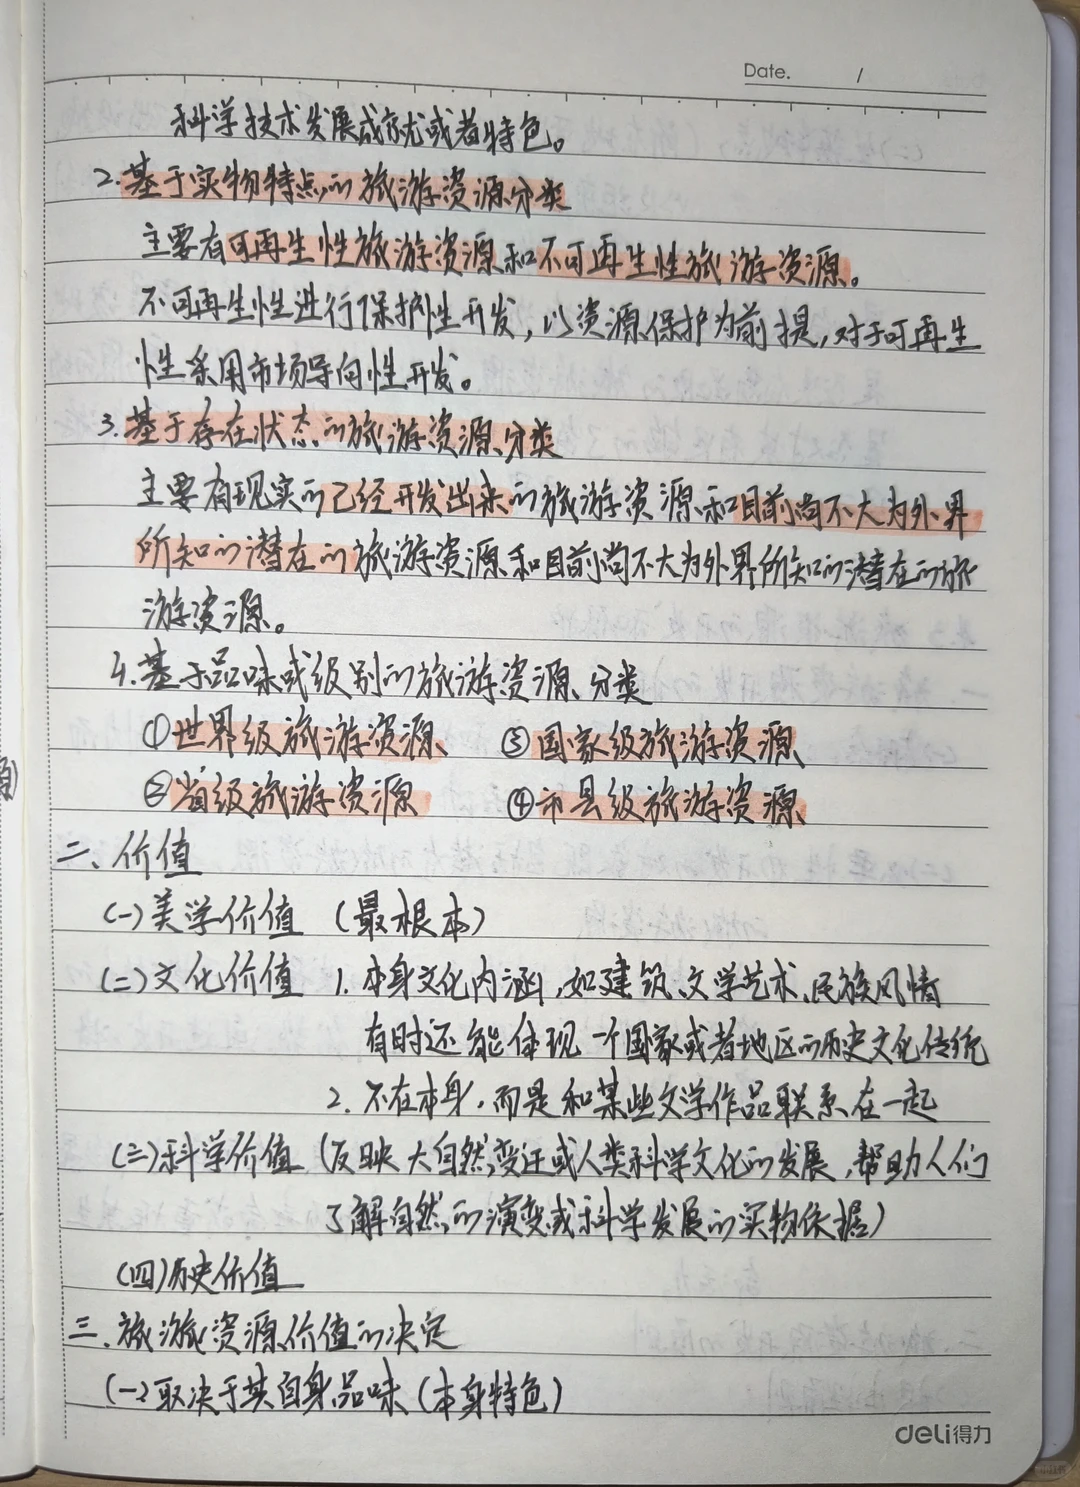 Date. /
科学技术发展成就或者特色。
2.基于实物特点的旅游资源分类
主要有可再生性旅游资源和不可再生性旅游资源。
不可再生性进行保护性开发,以资源保护为前提,对于可再生
性采用市场导向性开发。
3.基于存在状态的旅游资源分类
主要有现实的已经开发出来的旅游资源和目前尚不大为外界
所知的潜在的旅游资源和目前尚不大为外界所知的潜在的旅
游资源。
4.基于品味或级别的旅游资源分类
①世界级旅游资源 ③国家级旅游资源
②省级旅游资源 ④市县级旅游资源
二、价值
(一)美学价值 (最根本)
(二)文化价值 1.本身文化内涵,如建筑、文学艺术、民族风情
有时还能体现一个国家或者地区的历史文化传统
2.不在本身,而是和某些文学作品联系在一起
(三)科学价值 (反映大自然变迁或人类科学文化的发展,帮助人们
了解自然的演变或科学发展的实物依据)
(四)历史价值
三、旅游资源价值的决定
(一)取决于其自身品味(本身特色)
deli得力